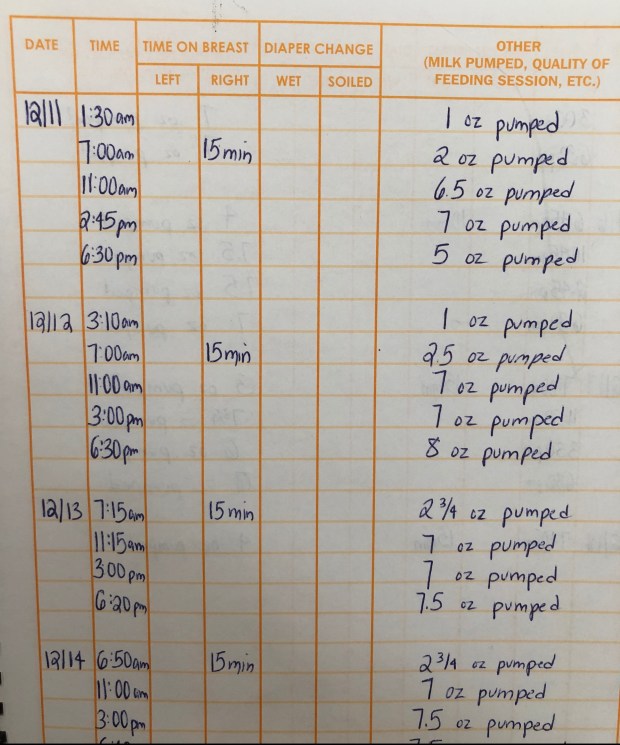 DATE TIME TIME ON BREAST DIAPER CHANGE OTHER
(MILK PUMPED, QUALITY OF
FEEDING SESSION, ETC.)
LEFT RIGHT WET SOILED
12/11 1:30am 1 oz pumped
7:00am 15min 2 oz pumped
11:00am 6.5 oz pumped
2:45pm 7 oz pumped
6:30pm 5 oz pumped
12/12 3:10am 1 oz pumped
7:00am 15min 2.5 oz pumped
11:00am 7 oz pumped
3:00pm 7 oz pumped
6:30pm 8 oz pumped
12/13 7:15am 15min 2 3/4 oz pumped
11:15am 7 oz pumped
3:00pm 7 oz pumped
6:20pm 7.5 oz pumped
12/14 6:50am 15min 2 3/4 oz pumped
11:00am 7 oz pumped
3:00pm 7.5 oz pumped